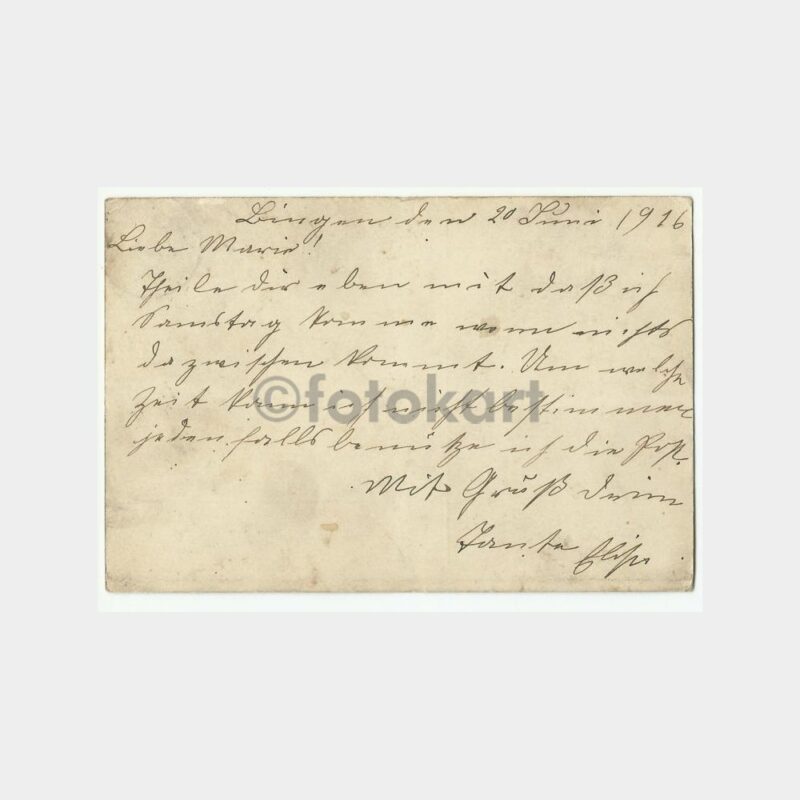 Bingen den 20 Juni 1916
Liebe Marie!
Theile dir eben mit daß ich
Samstag komme wenn nichts
dazwischen kommt. Um welche
Zeit kann ich nicht bestimmen
jedenfalls benütze ich die Post.
Mit Gruß deine
Tante Elise
©fotokart